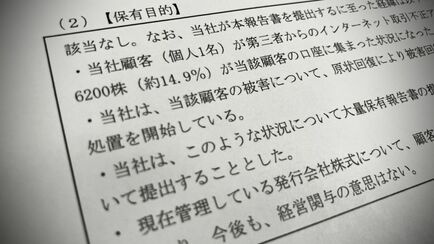 （2）【保有目的】
該当なし。なお、当社が本報告書を提出するに至った経緯は以
・当社顧客（個人1名）が第三者からのインターネット取引不正ア
6200株（約14.9%）が当該顧客の口座に集まった状況になった
・当社は、当該顧客の被害について、原状回復により被害回
処置を開始している。
・当社は、このような状況について大量保有報告書の
いて提出することとした。
・現在管理している発行会社株式について、顧客
り、今後も、経営関与の意思はない。